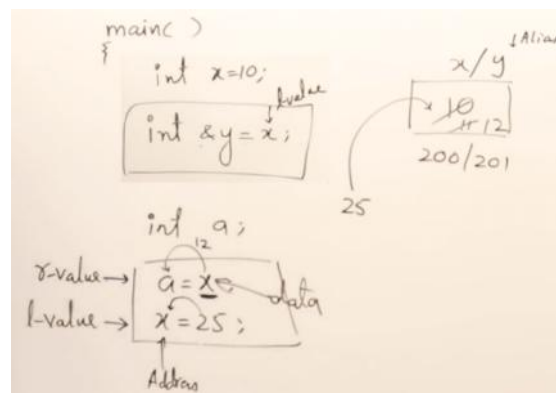 main( )
{
int x=10;
lvalue
int &y=x;
Alias
x/y
10
11 12
200/201
25
int a;
12
r-value → a=x data
l-value → x=25;
Address